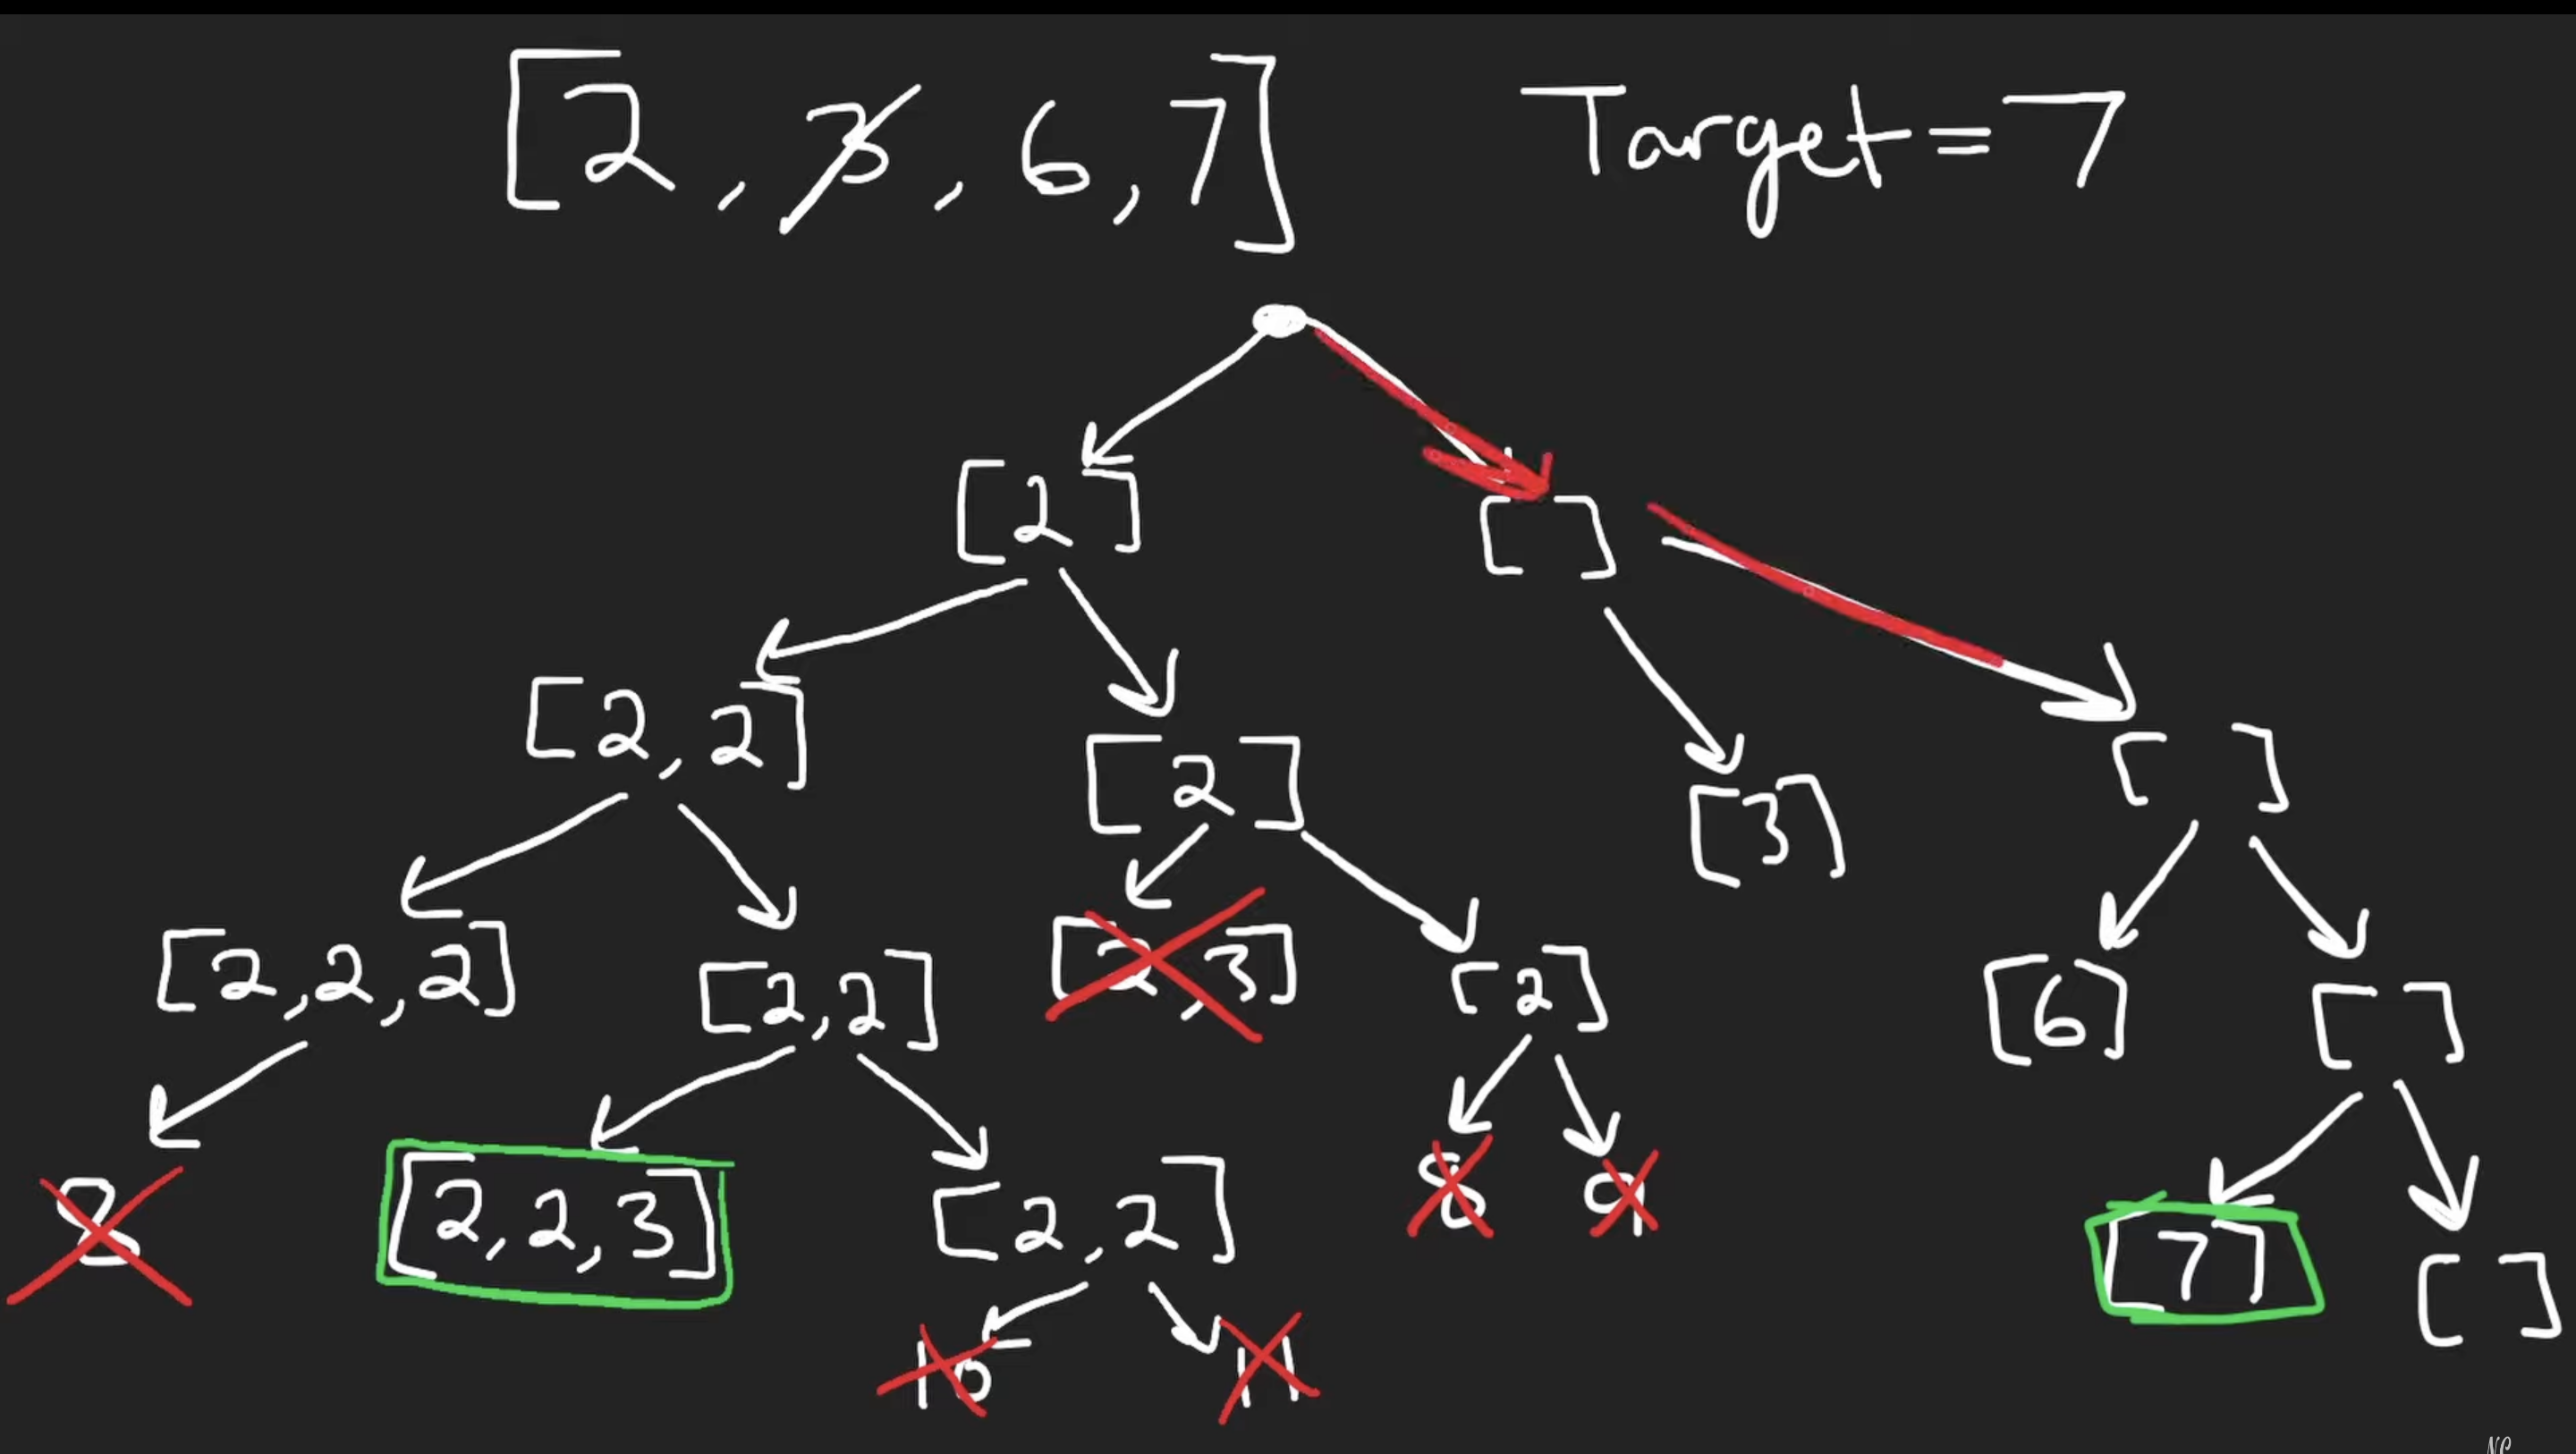 [2, 3, 6, 7] Target=7
[2] []
[2,2] [2] [3] []
[2,2,2] [2,2] [2,3] [2] [6] []
8 [2,2,3] [2,2] 8 9 [7] []
10 11
NC